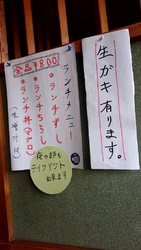 生ガキ有ります。
ランチメニュー
全品¥800
・ランチずし
・ランチちらし
・ランチ丼(マグロ)
(味噌汁付)
夜の部も
テイクアウト
出来ます